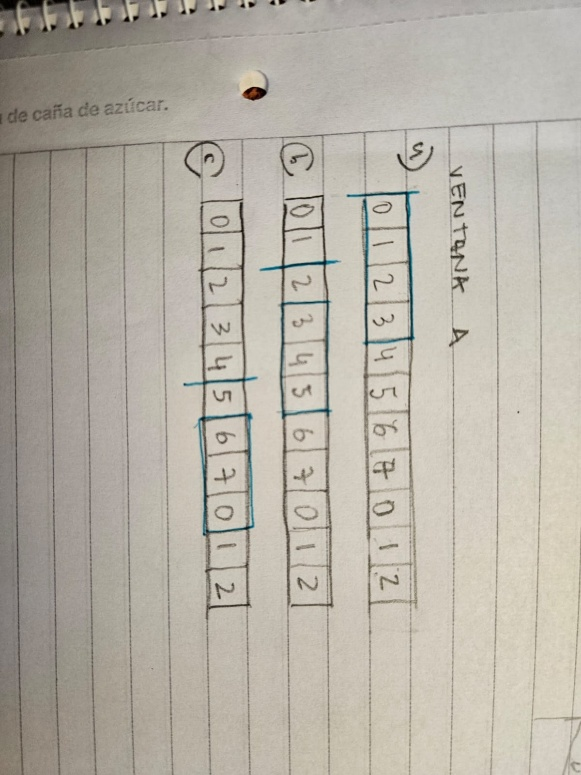 de caña de azúcar.
VENTANA A
a) 0 1 2 3 4 5 6 7 0 1 2
b) 0 1 2 3 4 5 6 7 0 1 2
c) 0 1 2 3 4 5 6 7 0 1 2